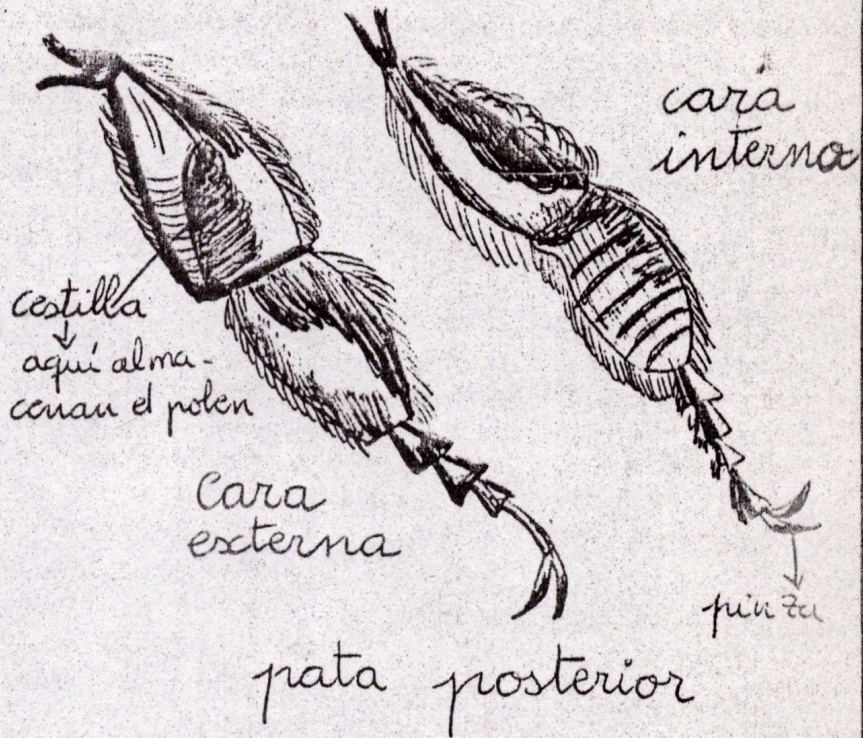 cara
interna
cestilla
aquí alma-
cenan el polen
Cara
externa
pinza
pata posterior